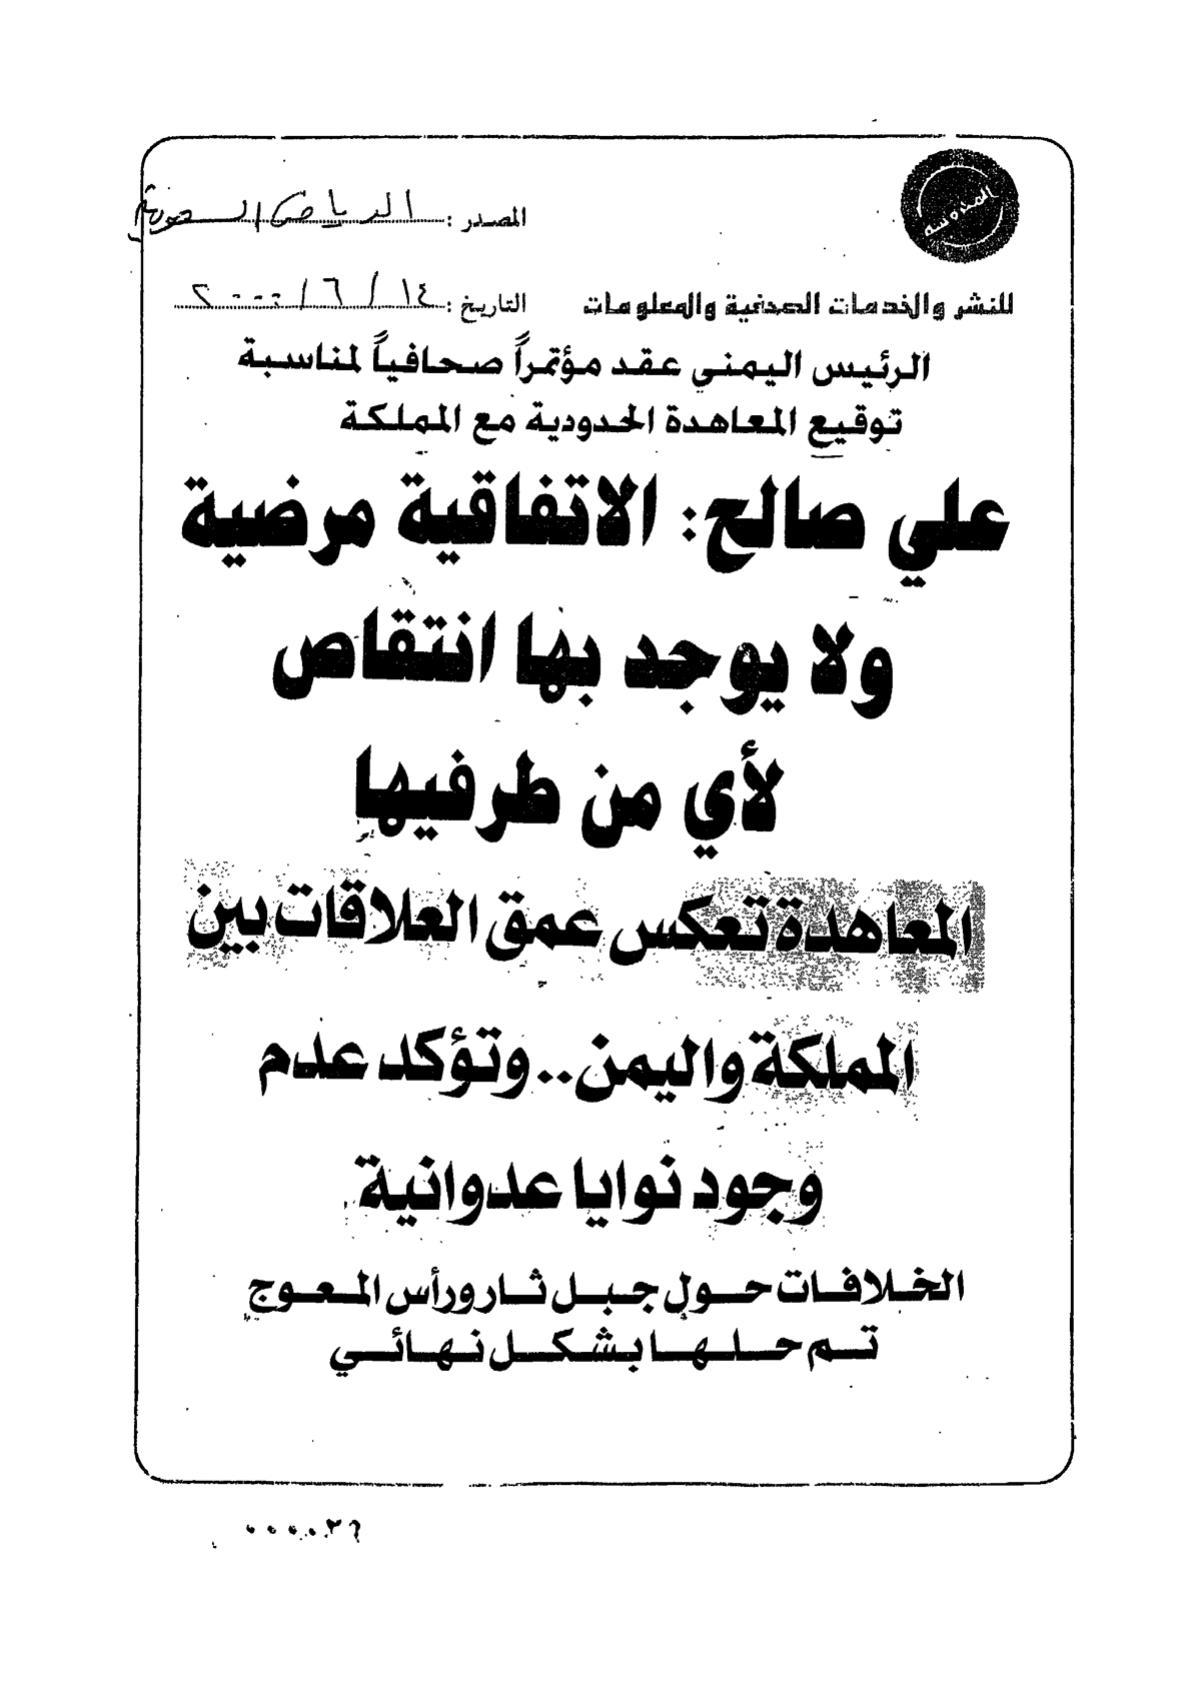 المدونة
المصدر : الرياض السعودية
للنشر والخدمات الصحفية والمعلومات
التاريخ : ١٤ / ٦ / ٢٠٠٠
الرئيس اليمني عقد مؤتمراً صحافياً لمناسبة
توقيع المعاهدة الحدودية مع المملكة
علي صالح: الاتفاقية مرضية
ولا يوجد بها انتقاص
لأي من طرفيها
المعاهدة تعكس عمق العلاقات بين
المملكة واليمن.. وتؤكد عدم
وجود نوايا عدوانية
الخلافات حول جبل ثار ورأس المعوج
تم حلها بشكل نهائي